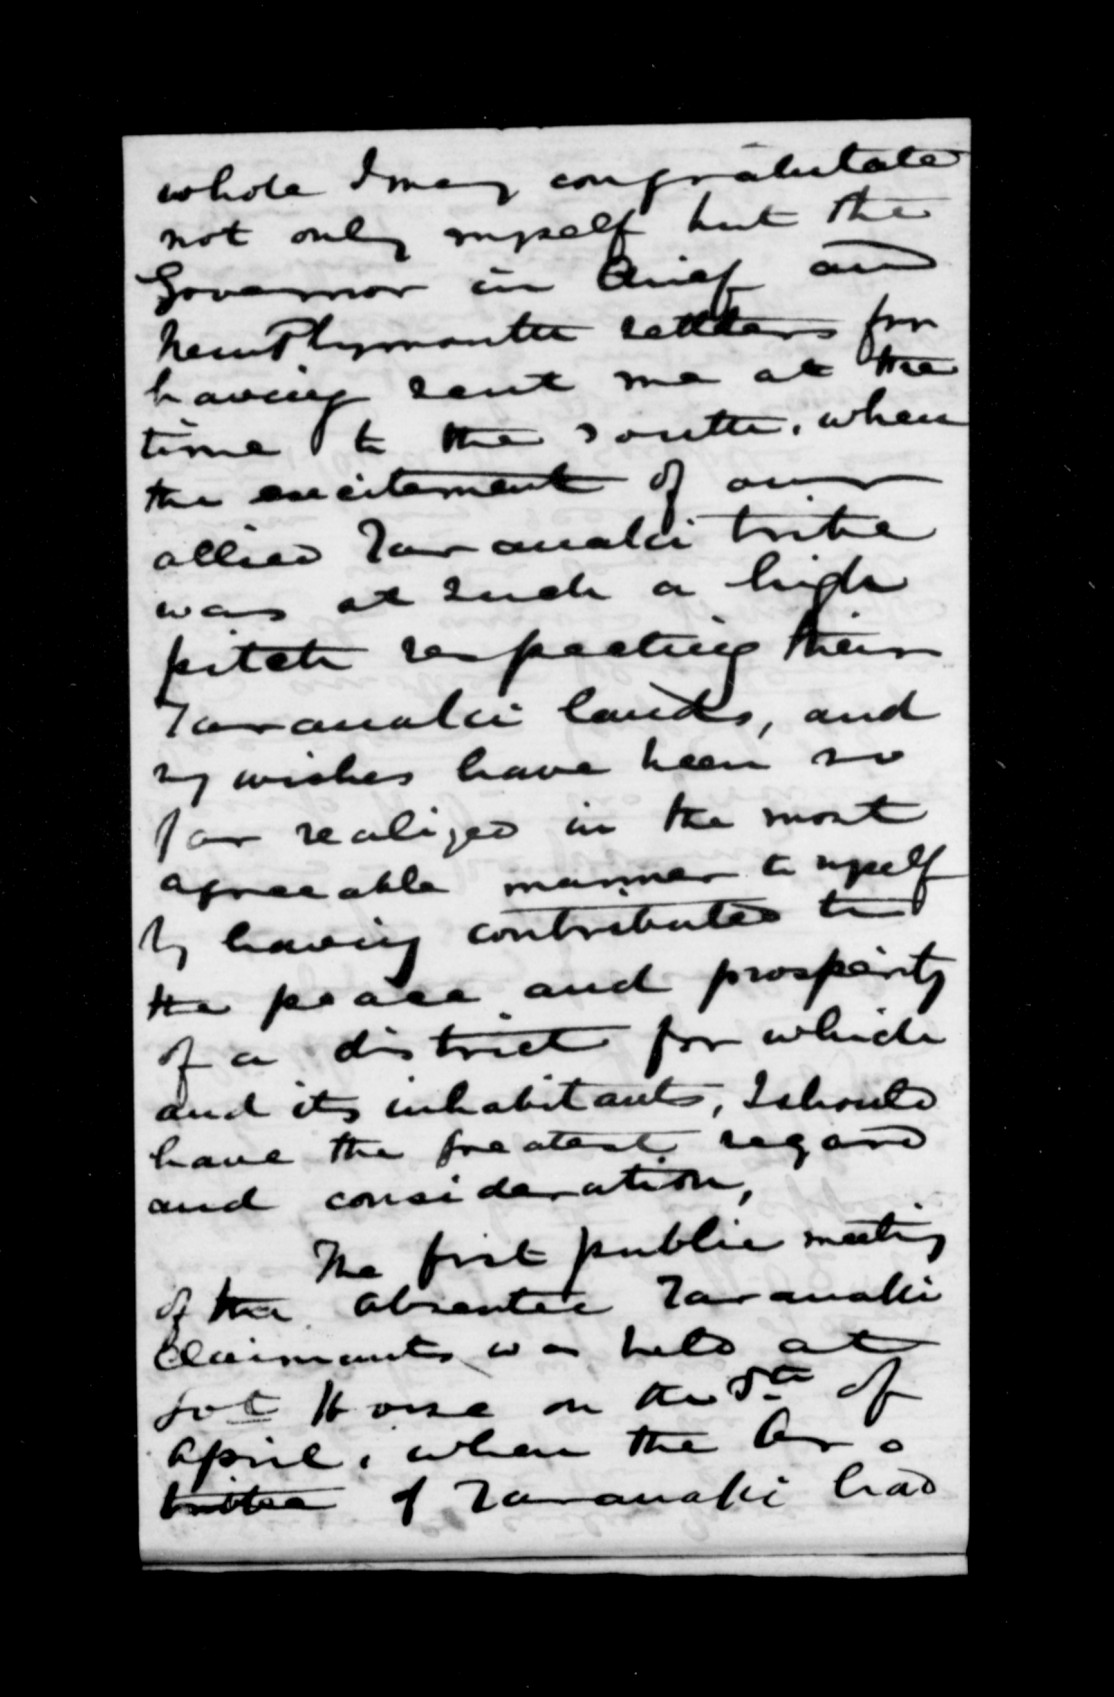 whole I may congratulate
not only myself but the
Governor in Chief and
New Plymouth settlers for
having sent me at the
time to the South, when
the excitement of our
allied Taranaki tribe
was at such a high
pitch respecting their
Taranaki lands, and
my wishes have been so
far realized in the most
agreeable manner to myself
by having contributed to
the peace and prosperity
of a district for which
and its inhabitants, I should
have the greatest regard
and consideration,
The first public meeting
of the absentee Taranaki
Claimants was held at
House on the 5th of
April, when the
of Taranaki had